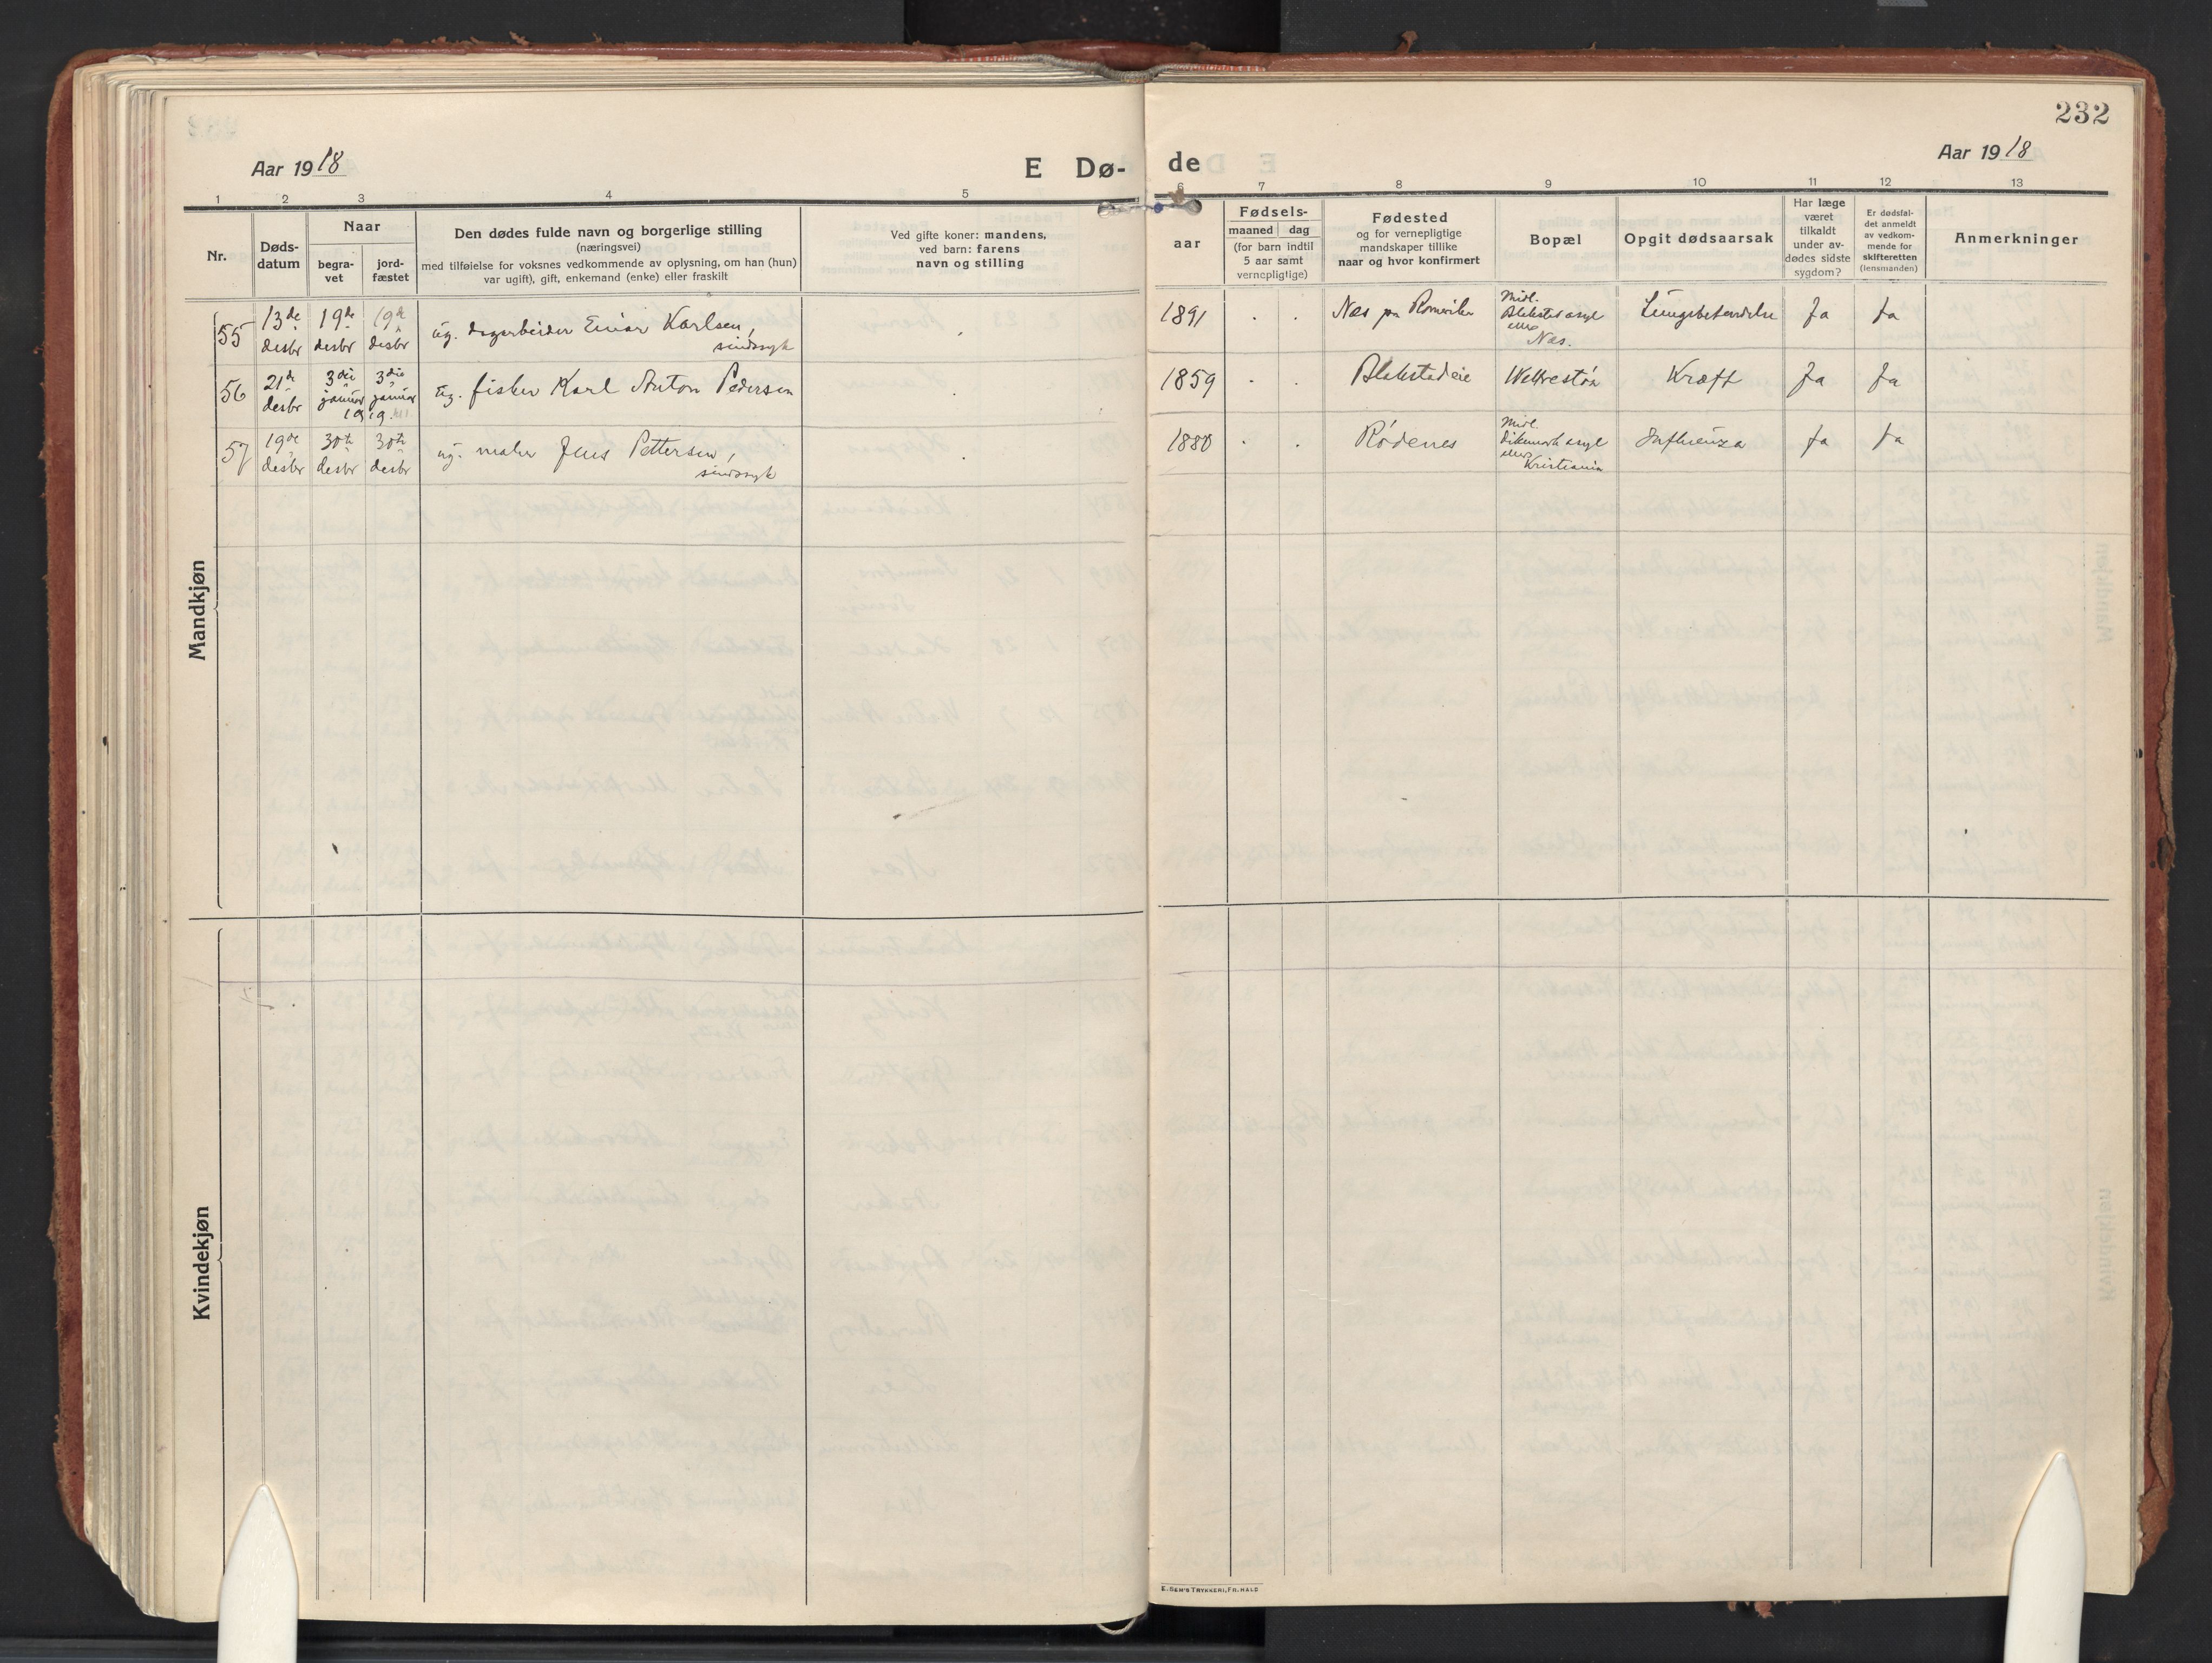 232
Aar 1918
E Dø-
de
Aar 1918
1 2 3 4 5
6 7 8 9 10 11 12 13
Nr.
Døds-
datum
Naar
begra-
vet
jord-
fæstet
Den dødes fulde navn og borgerlige stilling
(næringsvei)
med tilføielse for voksnes vedkommende av oplysning, om han (hun)
var ugift), gift, enkemand (enke) eller fraskilt
Ved gifte koner: mandens,
ved barn: farens
navn og stilling
aar
Fødsels-
maaned dag
(for barn indtil
5 aar samt
vernepligtige)
Fødested
og for vernepligtige
mandskaper tillike
naar og hvor konfirmert
Bopæl
Opgit dødsaarsak
Har læge
været
tilkaldt
under av-
dødes sidste
sygdom?
Er dødsfal-
det anmeldt
av vedkom-
mende for
skifteretten
(lensmanden)
Anmerkninger
Mandkjøn
55
13de
desbr
19de
desbr
19de
desbr
ug. dagarbeider Einar Karlsen,
sindssyk
1891
Nes på Romerike
Midl.
Blakstad asyl
ellers
Nes.
Lungebetændelse
Ja
Ja
56
21de
desbr
3die
januar
19
3die
januar
19.
ug. fisker Karl Anton Pedersen
1859
Blakstadeie
Kræft
Ja
Ja
57
19de
desbr
30te
desbr
30te
desbr
ug. maler Jens Pettersen,
sindssyk
1880
Rødenes
Midl.
Dikemark asyl
ellers
Kristiania
Influenza
Ja
Ja
Kvindekjøn
E. SEM'S TRYKKERI, FR. HALD